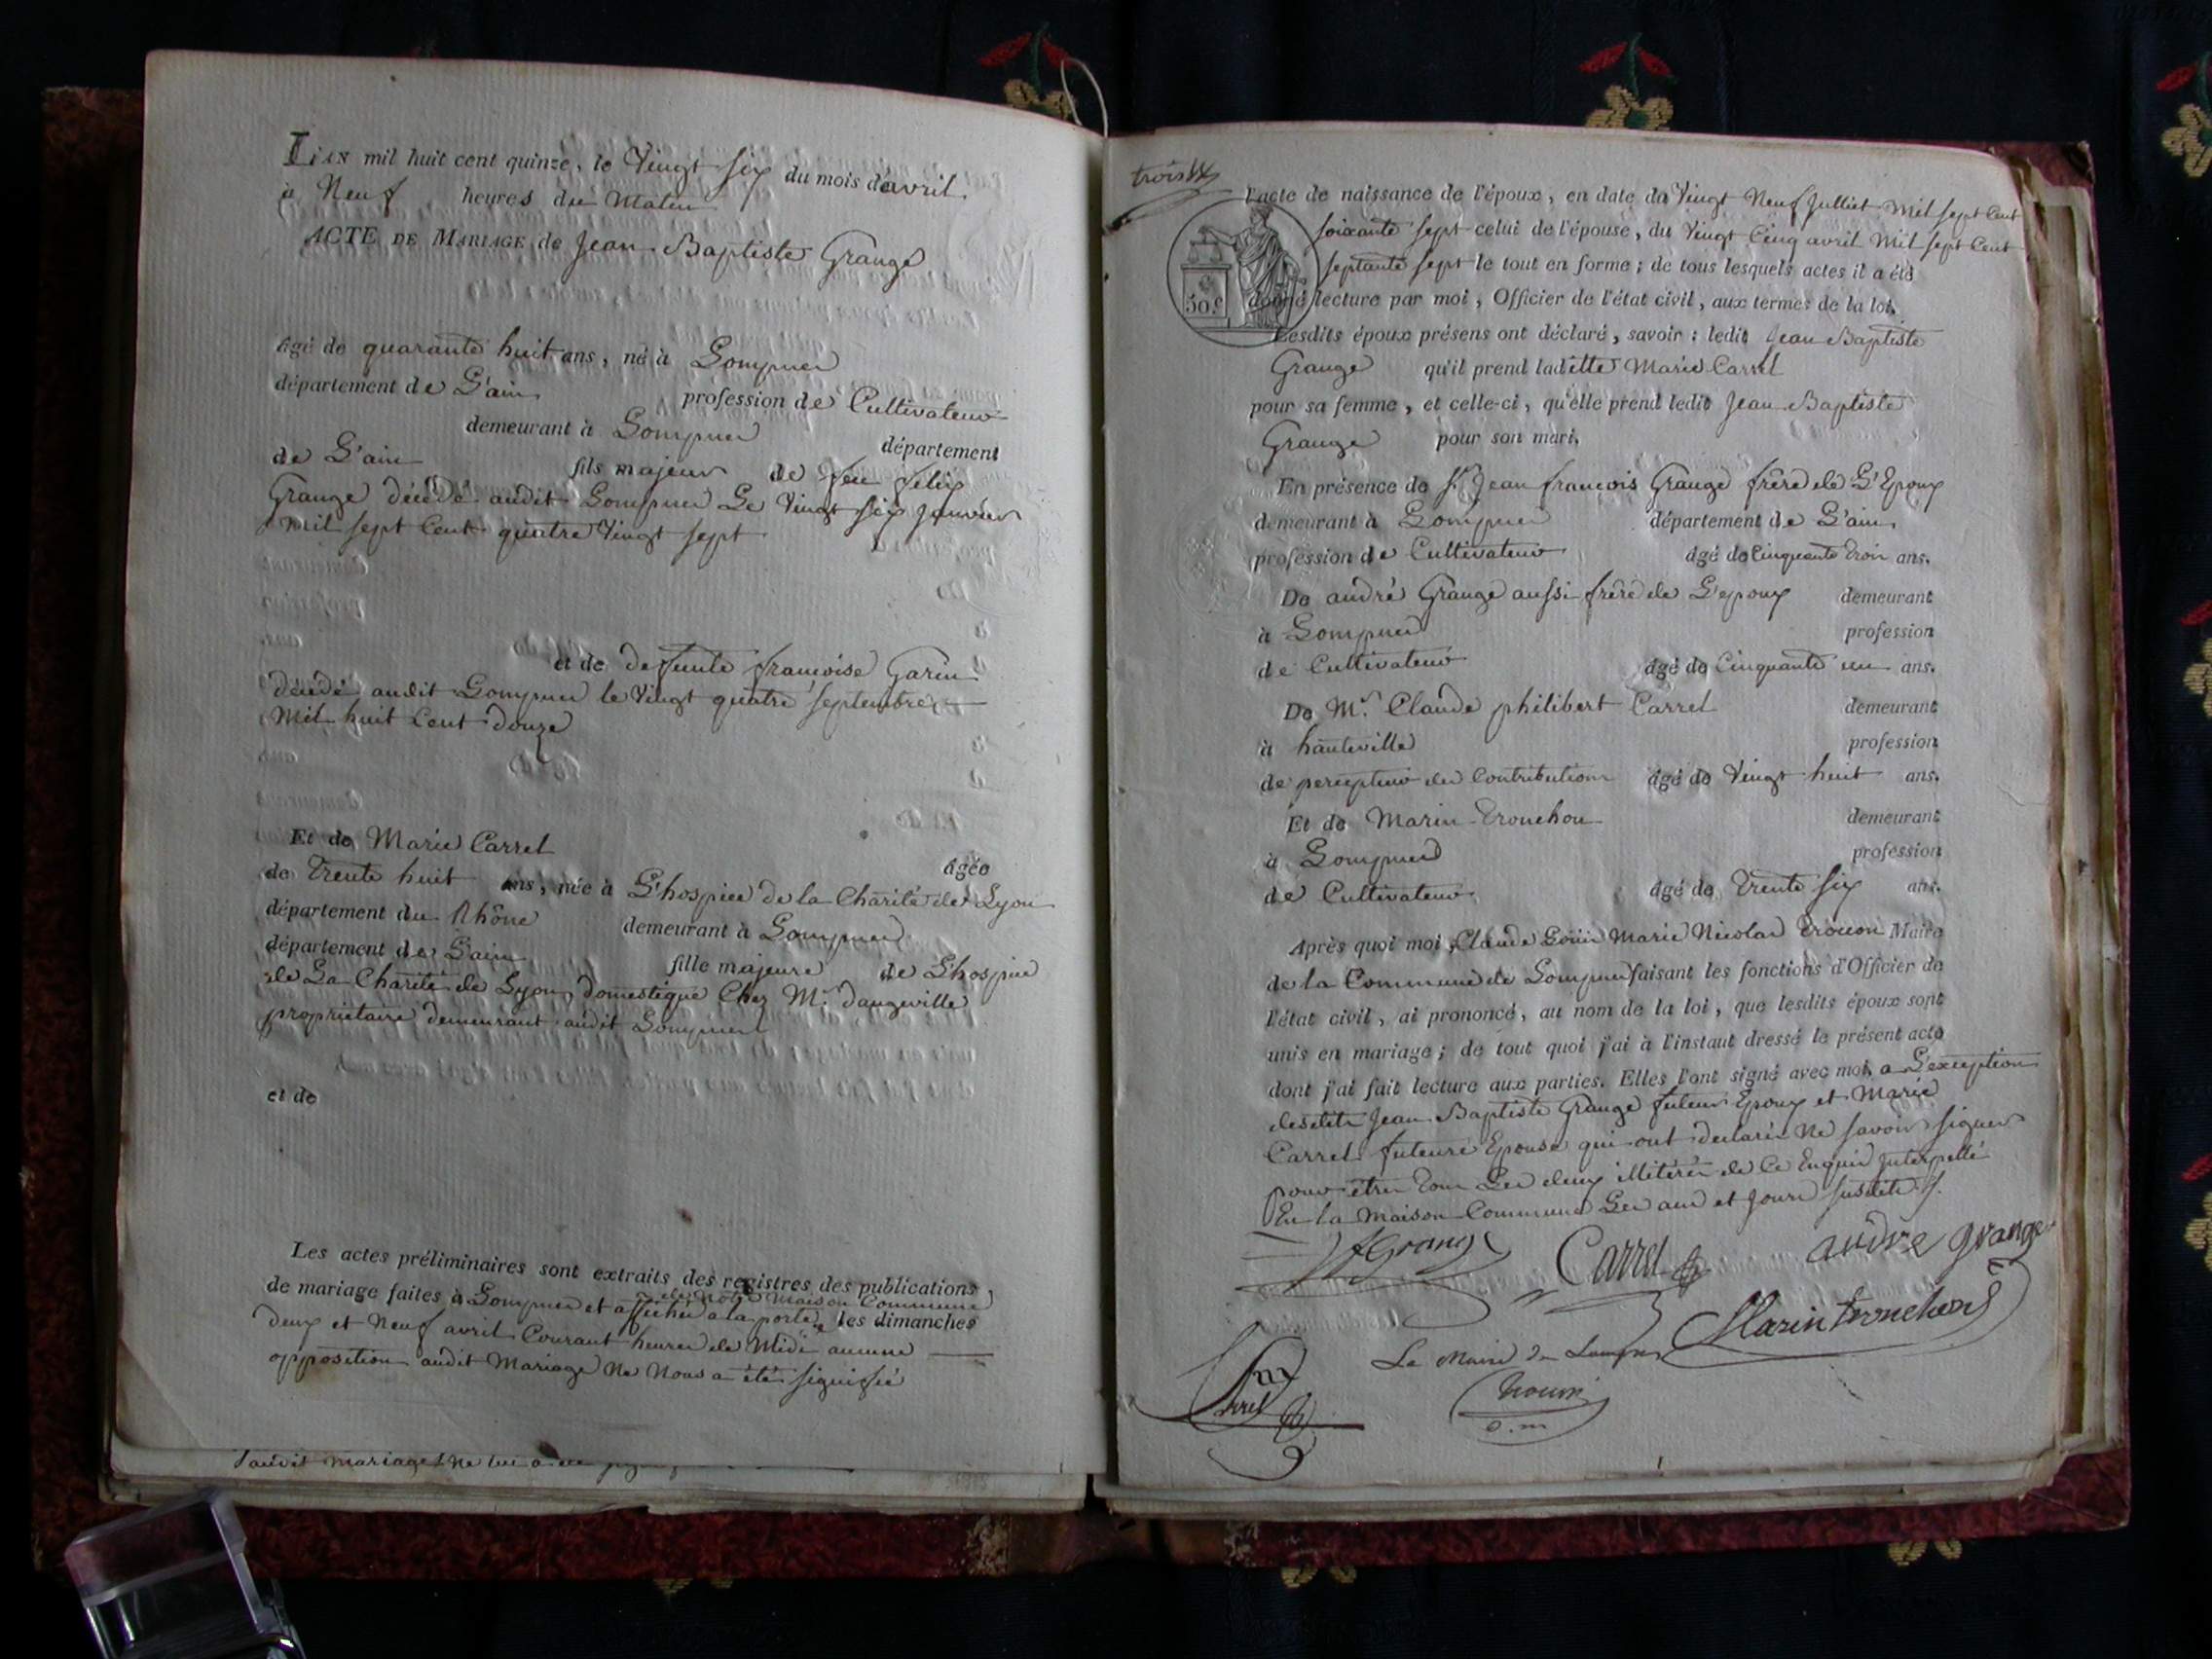 L'an mil huit cent quinze, le Vingt six du mois d'avril
à Neuf heures du Matin
ACTE DE MARIAGE de Jean Baptiste Grange
âgé de quarante huit ans, né à Lompnes
département de L'ain profession de Cultivateur
demeurant à Lompnes département
de L'ain fils majeur de feu felix
Grange décédé audit Lompnes Le Vingt six Janvier
mil sept Cent quatre Vingt sept
et de deffunte françoise Garin
décédé audit Lompnes le Vingt quatre septembre
Mil huit Cent douze
Et de Marie Carrel âgée
de Trente huit ans, née à L'hospice de la Charité de Lyon
département du Rhône demeurant à Lompnes
département de L'ain fille majeure de L'hospice
de La Charité de Lyon, domestique Chez Mr. dangeville
propriétaire demeurant audit Lompnes
et de
Les actes préliminaires sont extraits des registres des publications
de mariage faites à Lompnes et affichés a la porte de Notre Maison Commune les dimanches
deux et Neuf avril Courant heures de Midi aucune
opposition audit Mariage Ne Nous a été signifiée
audit mariage Ne
trois
l'acte de naissance de l'époux, en date du Vingt Neuf Julliet Mil sept Cent
soixante sept celui de l'épouse, du Vingt Cinq avril Mil sept Cent
septante sept le tout en forme; de tous lesquels actes il a été
donné lecture par moi, Officier de l'état civil, aux termes de la loi.
50 c
Lesdits époux présens ont déclaré, savoir: ledit Jean Baptiste
Grange qu'il prend ladite Marie Carrel
pour sa femme, et celle-ci, qu'elle prend ledit Jean Baptiste
Grange pour son mari.
En présence de Sr. Jean françois Grange frère de L'Epoux
demeurant à Lompnes département de L'ain
profession de Cultivateur âgé de Cinquante Trois ans.
De andré Grange aussi frère de L'epoux demeurant
à Lompnes profession
de Cultivateur âgé de Cinquante un ans.
De Mr. Claude philibert Carrel demeurant
à hauteville profession
de percepteur des Contributions âgé de Vingt huit ans.
Et de Marin Tronchon demeurant
à Lompnes profession
de Cultivateur âgé de Trente six ans.
Après quoi moi, Claude Louis Marie Nicolas Trocon Maire
de la Commune de Lompnes faisant les fonctions d'Officier de
l'état civil, ai prononcé, au nom de la loi, que lesdits époux sont
unis en mariage; de tout quoi j'ai à l'instant dressé le présent acte
dont j'ai fait lecture aux parties. Elles l'ont signé avec moi, a L'exception
desdits Jean Baptiste Grange futeur Epoux et Marie
Carrel futeure Epouse qui ont declarés Ne savoir signer
pour être Tous Les deux illiterés de Ce Enquis Interpellé
En la Maison Commune Les an et jours susdits
Carrel andre grange
Marin tronchon
Le Maire de Lompnes